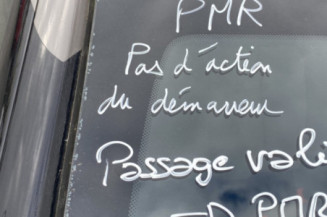 PMR
Pas d'action
du démarreur
Passage vali
PMR